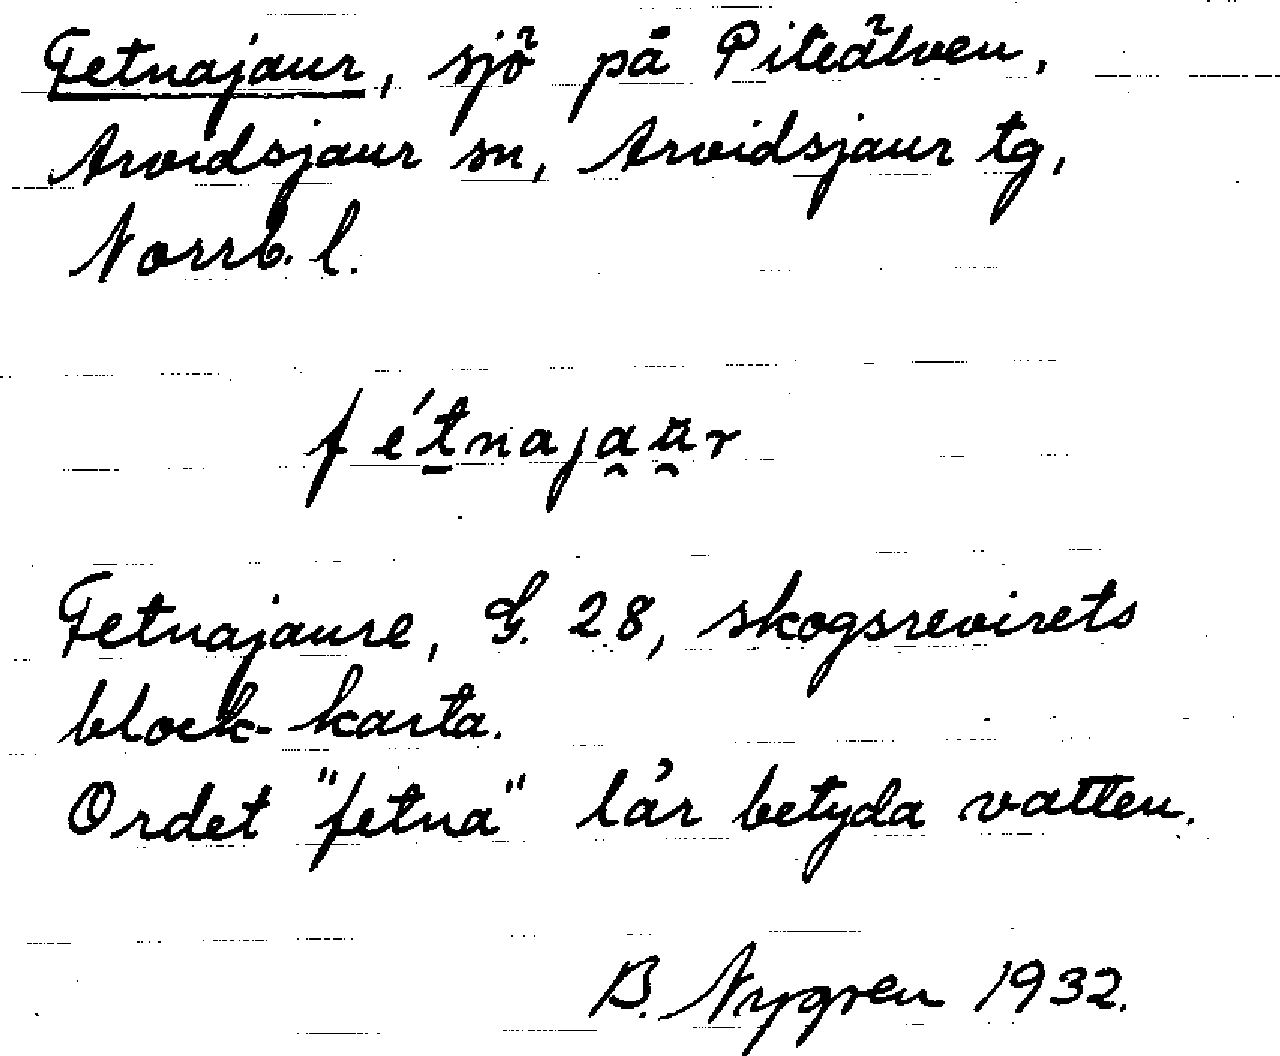 Fetnajaur, sjö på Piteälven,
Arvidsjaur sn, Arvidsjaur tg,
Norrb. l.
fétnajaur
Fetnajaure, G. 28, skogsrevirets
block-karta.
Ordet "fetna" lär betyda vatten.
B. Nygren 1932.